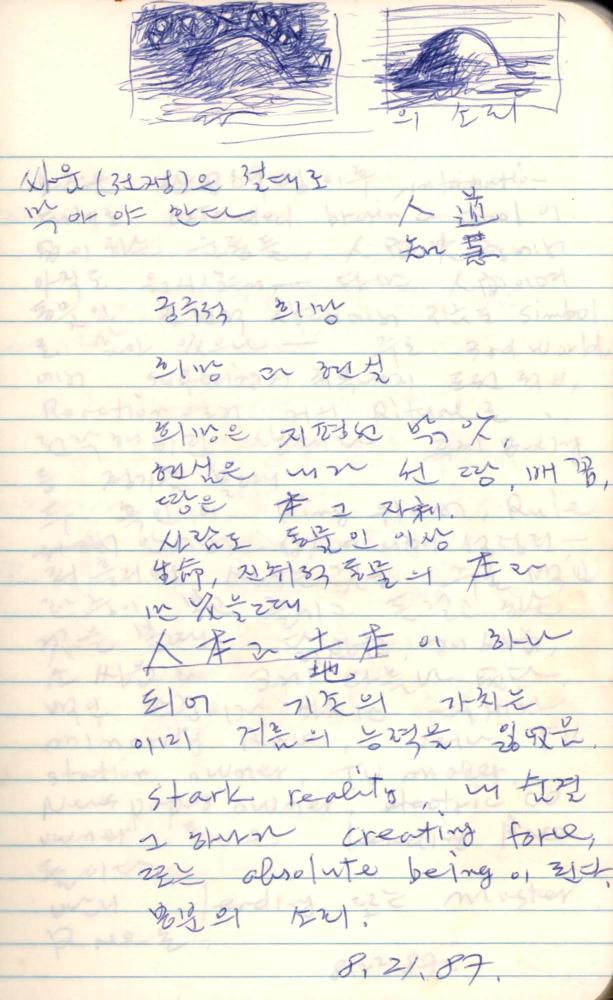 의 소리
싸움(전쟁)은 절대로
막아야 한다
人 道
知 慧
궁극적 희망
희망과 현실
희망은 지평선 밖 것,
현실은 내가 선 땅, 배꼽,
땅은 本 그 자체.
사람도 동물인 이상
生命, 전취적 동물의 本과
만났을 때
人本과 土本이 하나
地
되어 기존의 가치는
이미 거름의 능력을 잃었음.
stark reality, 내 숨결
그 하나가 creating force,
또는 absolute being이 된다.
의 소리.
8. 21. 87.